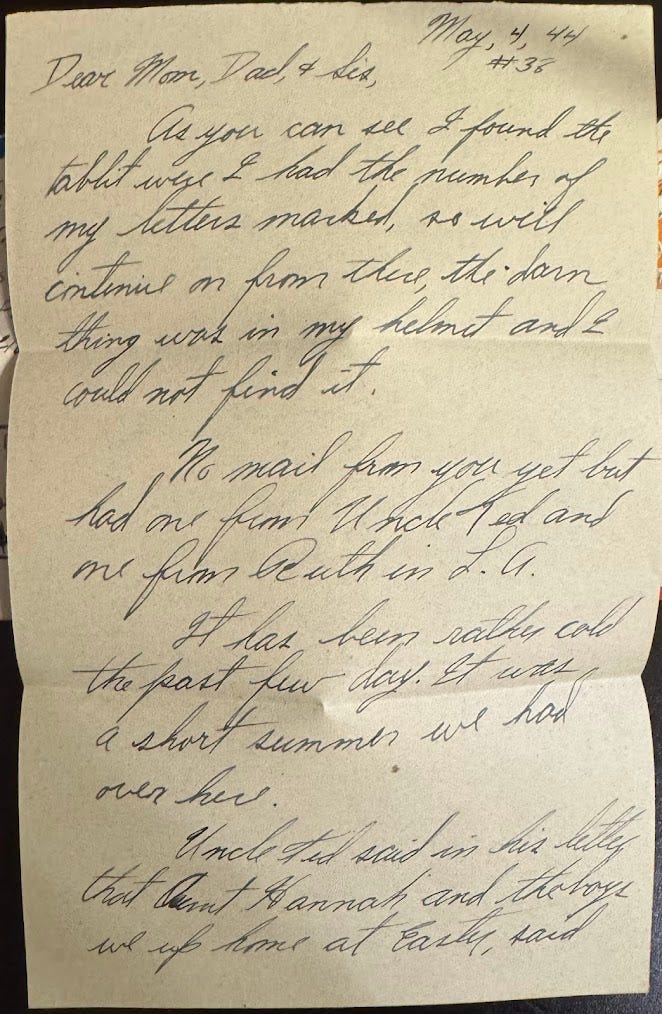 May, 4, 44
#38
Dear Mom, Dad, & Sis,
As you can see I found the
tablit were I had the number of
my letters marked, so will
continue on from there, the darn
thing was in my helmet and I
could not find it.
No mail from you yet but
had one from Uncle Ted and
one from Ruth in L.A.
It has been rather cold
the past few day. It was
a short summer we had
over here.
Uncle Ted said in his letter
that Aunt Hannah and the boys
we up home at Easter, said